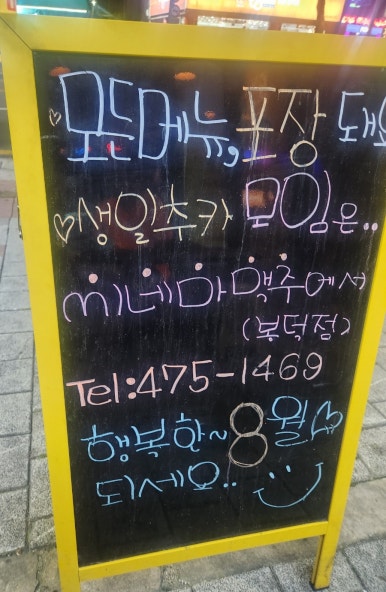 ♡모든메뉴, 포장 돼요
♡생일추카 모임은..
씨네마맥주에서
(봉덕점)
Tel:475-1469
행복한~8월♡
되세요..